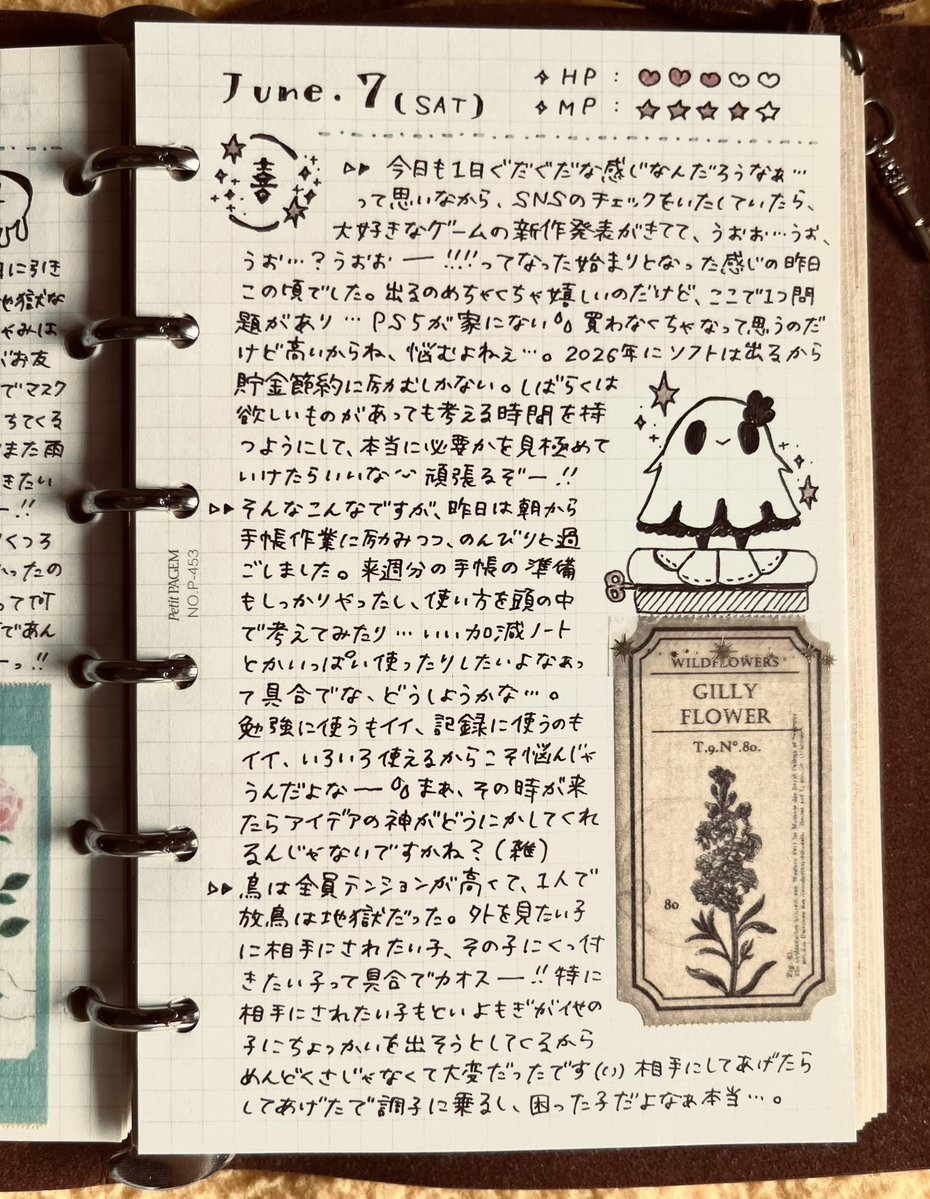 June.7(SAT)
✧ HP : ♥♥♥♡♡
✧ MP : ★★★★☆
喜
▷▷ 今日も1日ぐだぐだな感じなんだろうなぁ…
って思いながら、SNSのチェックをいたしていたら、
大好きなゲームの新作発表がきてて、うぉぉ…うぉ、
うぉ…？うぉぉー!!!!ってなった始まりとなった感じの昨日
この頃でした。出るのめちゃくちゃ嬉しいのだけど、ここで1つ問
題があり…PS5が家にない。買わなくちゃなって思うのだ
けど高いからね、悩むよねぇ…。2026年にソフトは出るから
貯金節約に励むしかない。しばらくは
欲しいものがあっても考える時間を持
つようにして、本当に必要かを見極めて
いけたらいいな〜頑張るぞー!!
▷▷そんなこんなですが、昨日は朝から
手帳作業に励みつつ、のんびりと過
ごしました。来週分の手帳の準備
もしっかりやったし、使い方を頭の中
で考えてみたり…いい加減ノート
とかいっぱい使ったりしたいよなぁっ
て具合でな、どうしようかな…。
勉強に使うもイイ、記録に使うのも
イイ、いろいろ使えるからこそ悩んじゃ
うんだよなー。まぁ、その時が来
たらアイデアの神がどうにかしてくれ
るんじゃないですかね？(雑)
▷▷鳥は全員テンションが高くて、1人で
放鳥は地獄だった。外を見たい子
に相手にされたい子、その子にくっ付
きたい子って具合でカオスー!!特に
相手にされたい子もといよもぎが他の
子にちょっかいを出そうとしてくるから
めんどくさじゃなくて大変だったです(い)相手にしてあげたら
してあげたで調子に乗るし、困った子だよなぁ本当…。
Petit PAGEM
NO.P-453
WILDFLOWERS
GILLY
FLOWER
T.9.Nº.80.
80
に引き
地獄な
ゃみは
がお友
でマスク
ちてくる
また雨
きたい
ー!!
くつろ
かったの
って何
であん
ーっ!!